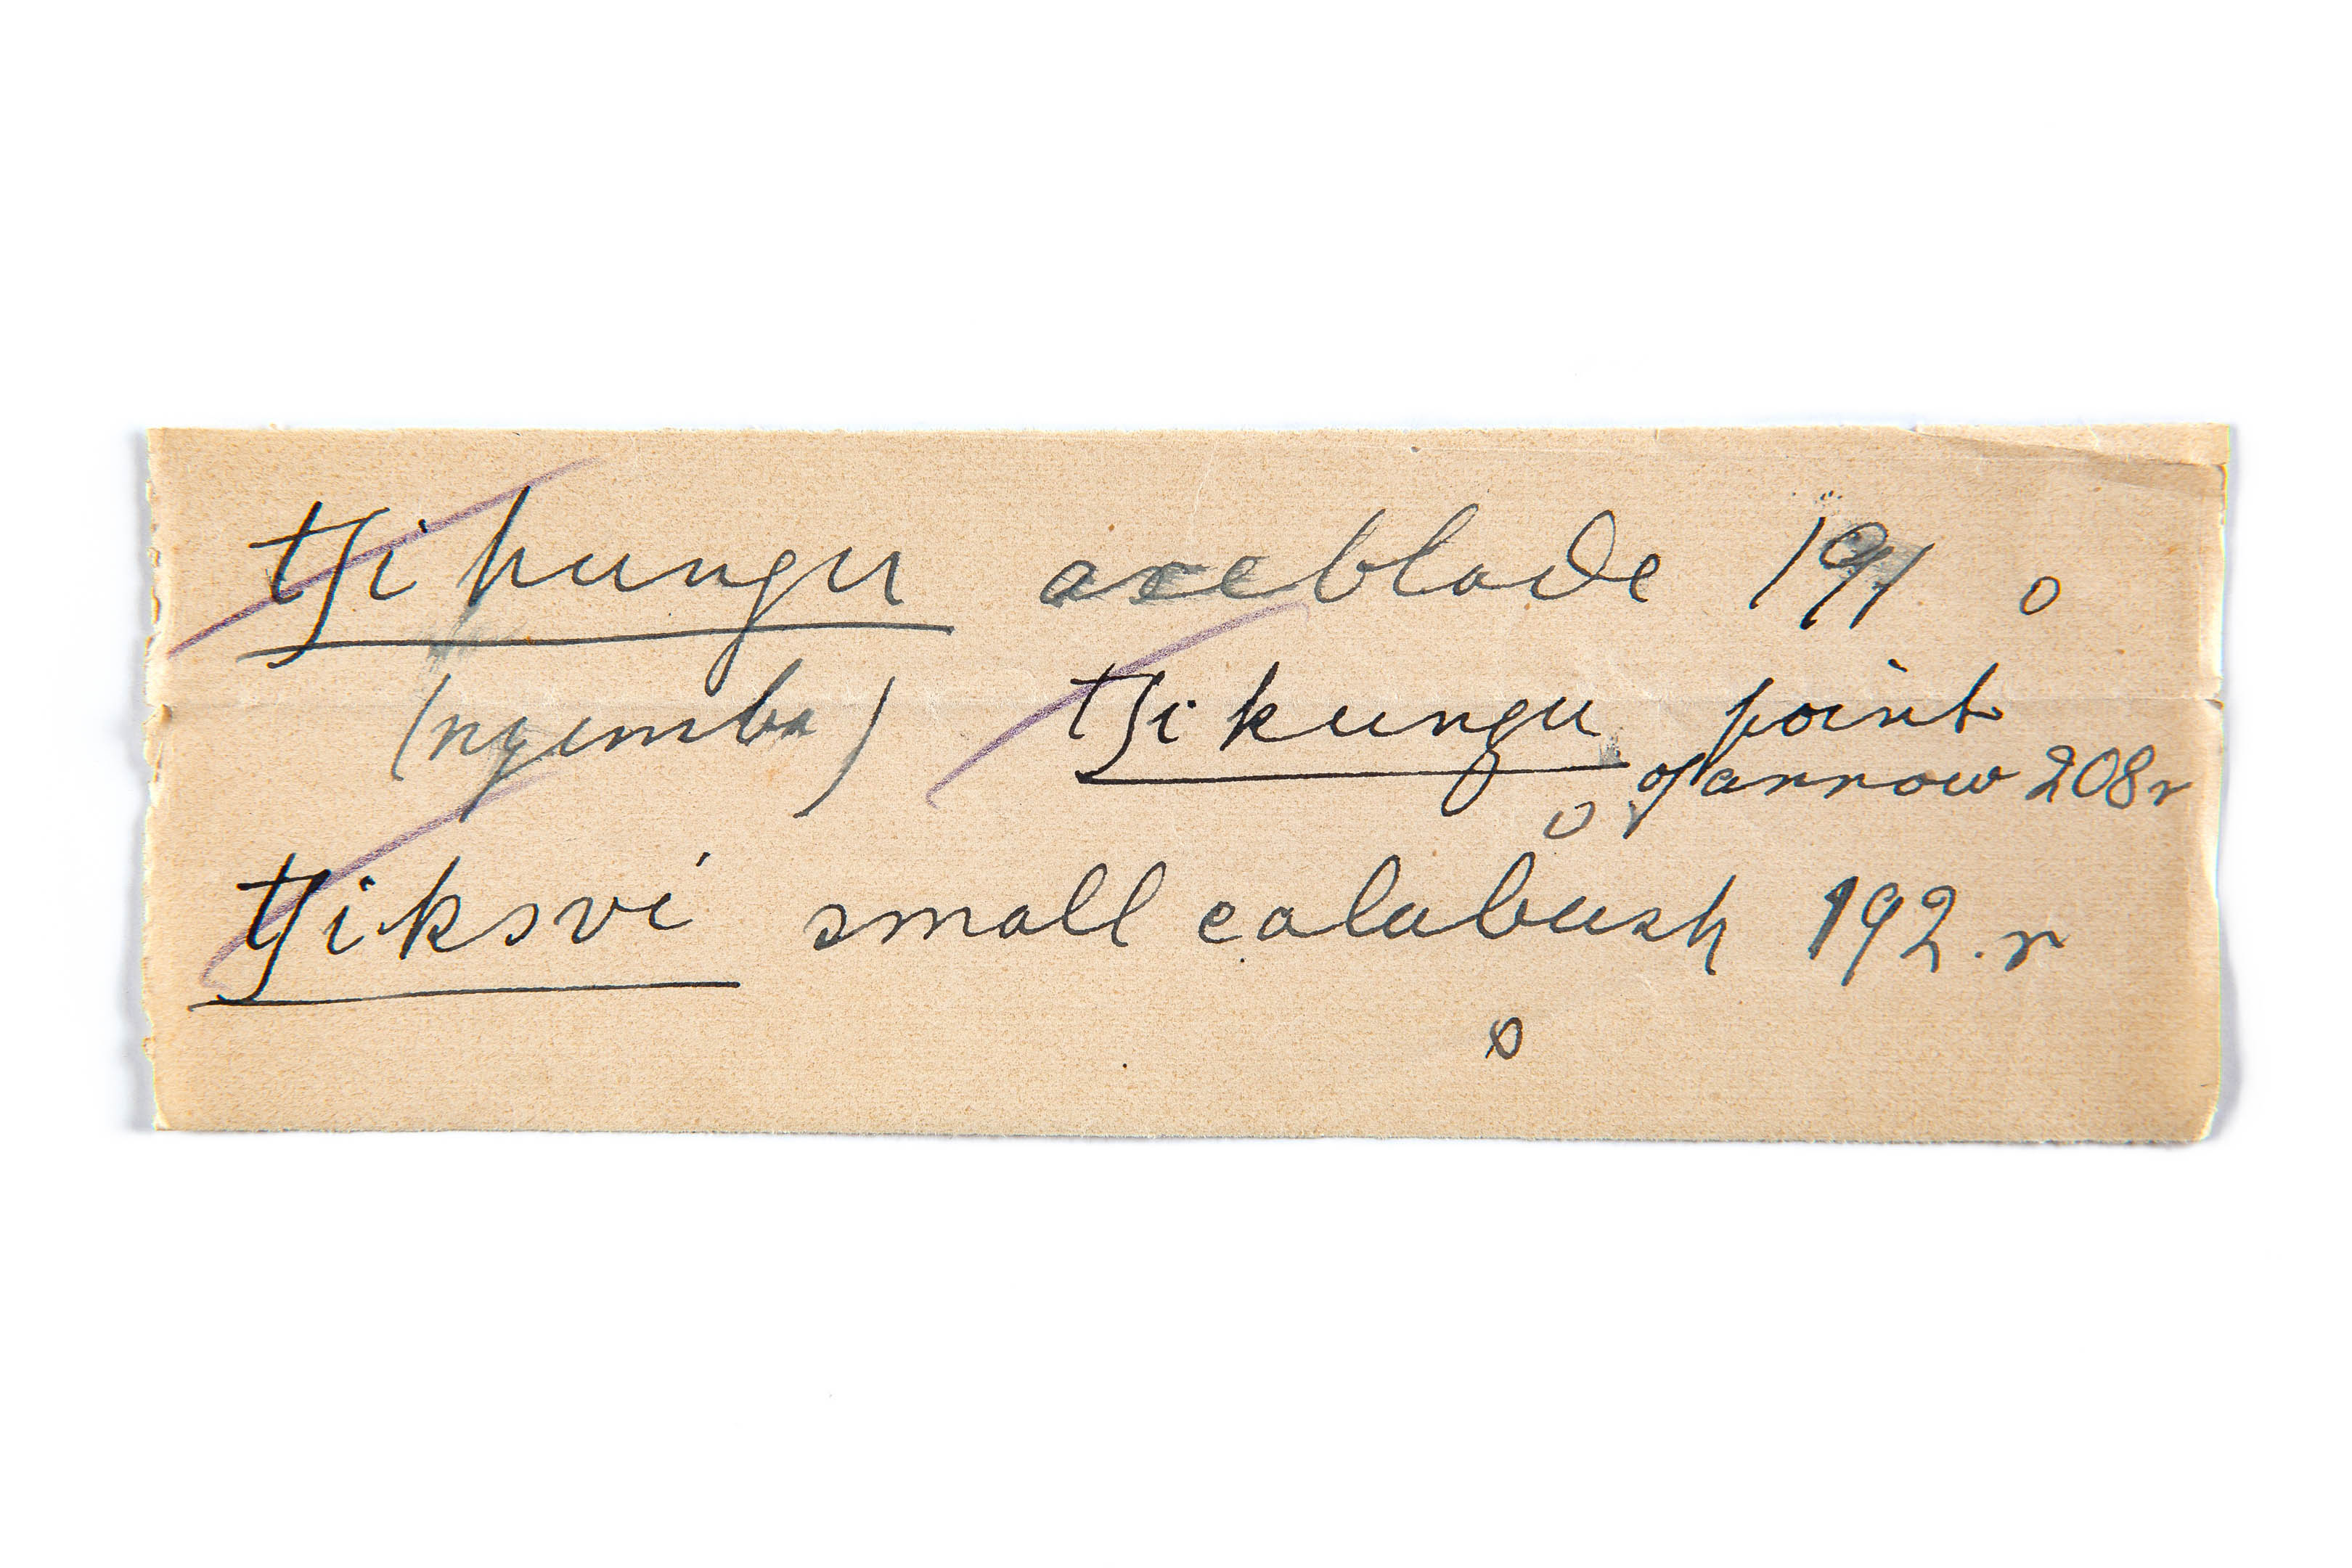 tʃihungu axeblade 191 o
(nyemba) tʃikungu point
of arrow 208r
o
tʃiksvi small calabash 192.r
o